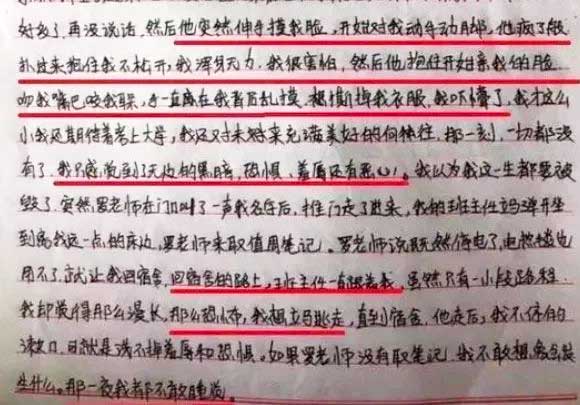 好多了,再没说话,然后他突然伸手摸我脸,开始对我动手动脚,他疯了般
扑过来抱住我不松开,我浑身无力,我很害怕,然后他抱住开始亲我的脸
吻我嘴巴咬我耳,手一直放在我背后乱摸,想撕掉我衣服,我吓懵了,我才这么
小我还期待着考上大学,我还对未来充满美好的向往,那一刻,一切都没
有了,我只感觉到了无边的黑暗,恐惧、羞辱还有恶心。我以为我这一生都要被
毁了,突然罗老师在门口叫了一声我名字后,推门走了进来,我的班主任立马弹开坐
到离我远一点的床边,罗老师来取值周笔记。罗老师说既然停电了,电热毯也
用不了,就让我回宿舍,回宿舍的路上,班主任一直跟着我,虽然只有一小段路程
我却觉得那么漫长,那么恐怖,我想立马逃走,直到宿舍,他走后,我不停的
漱口,可就是洗不掉羞辱和恐惧。如果罗老师没有取笔记,我不敢想象会发
生什么。那一夜我都不敢睡觉。